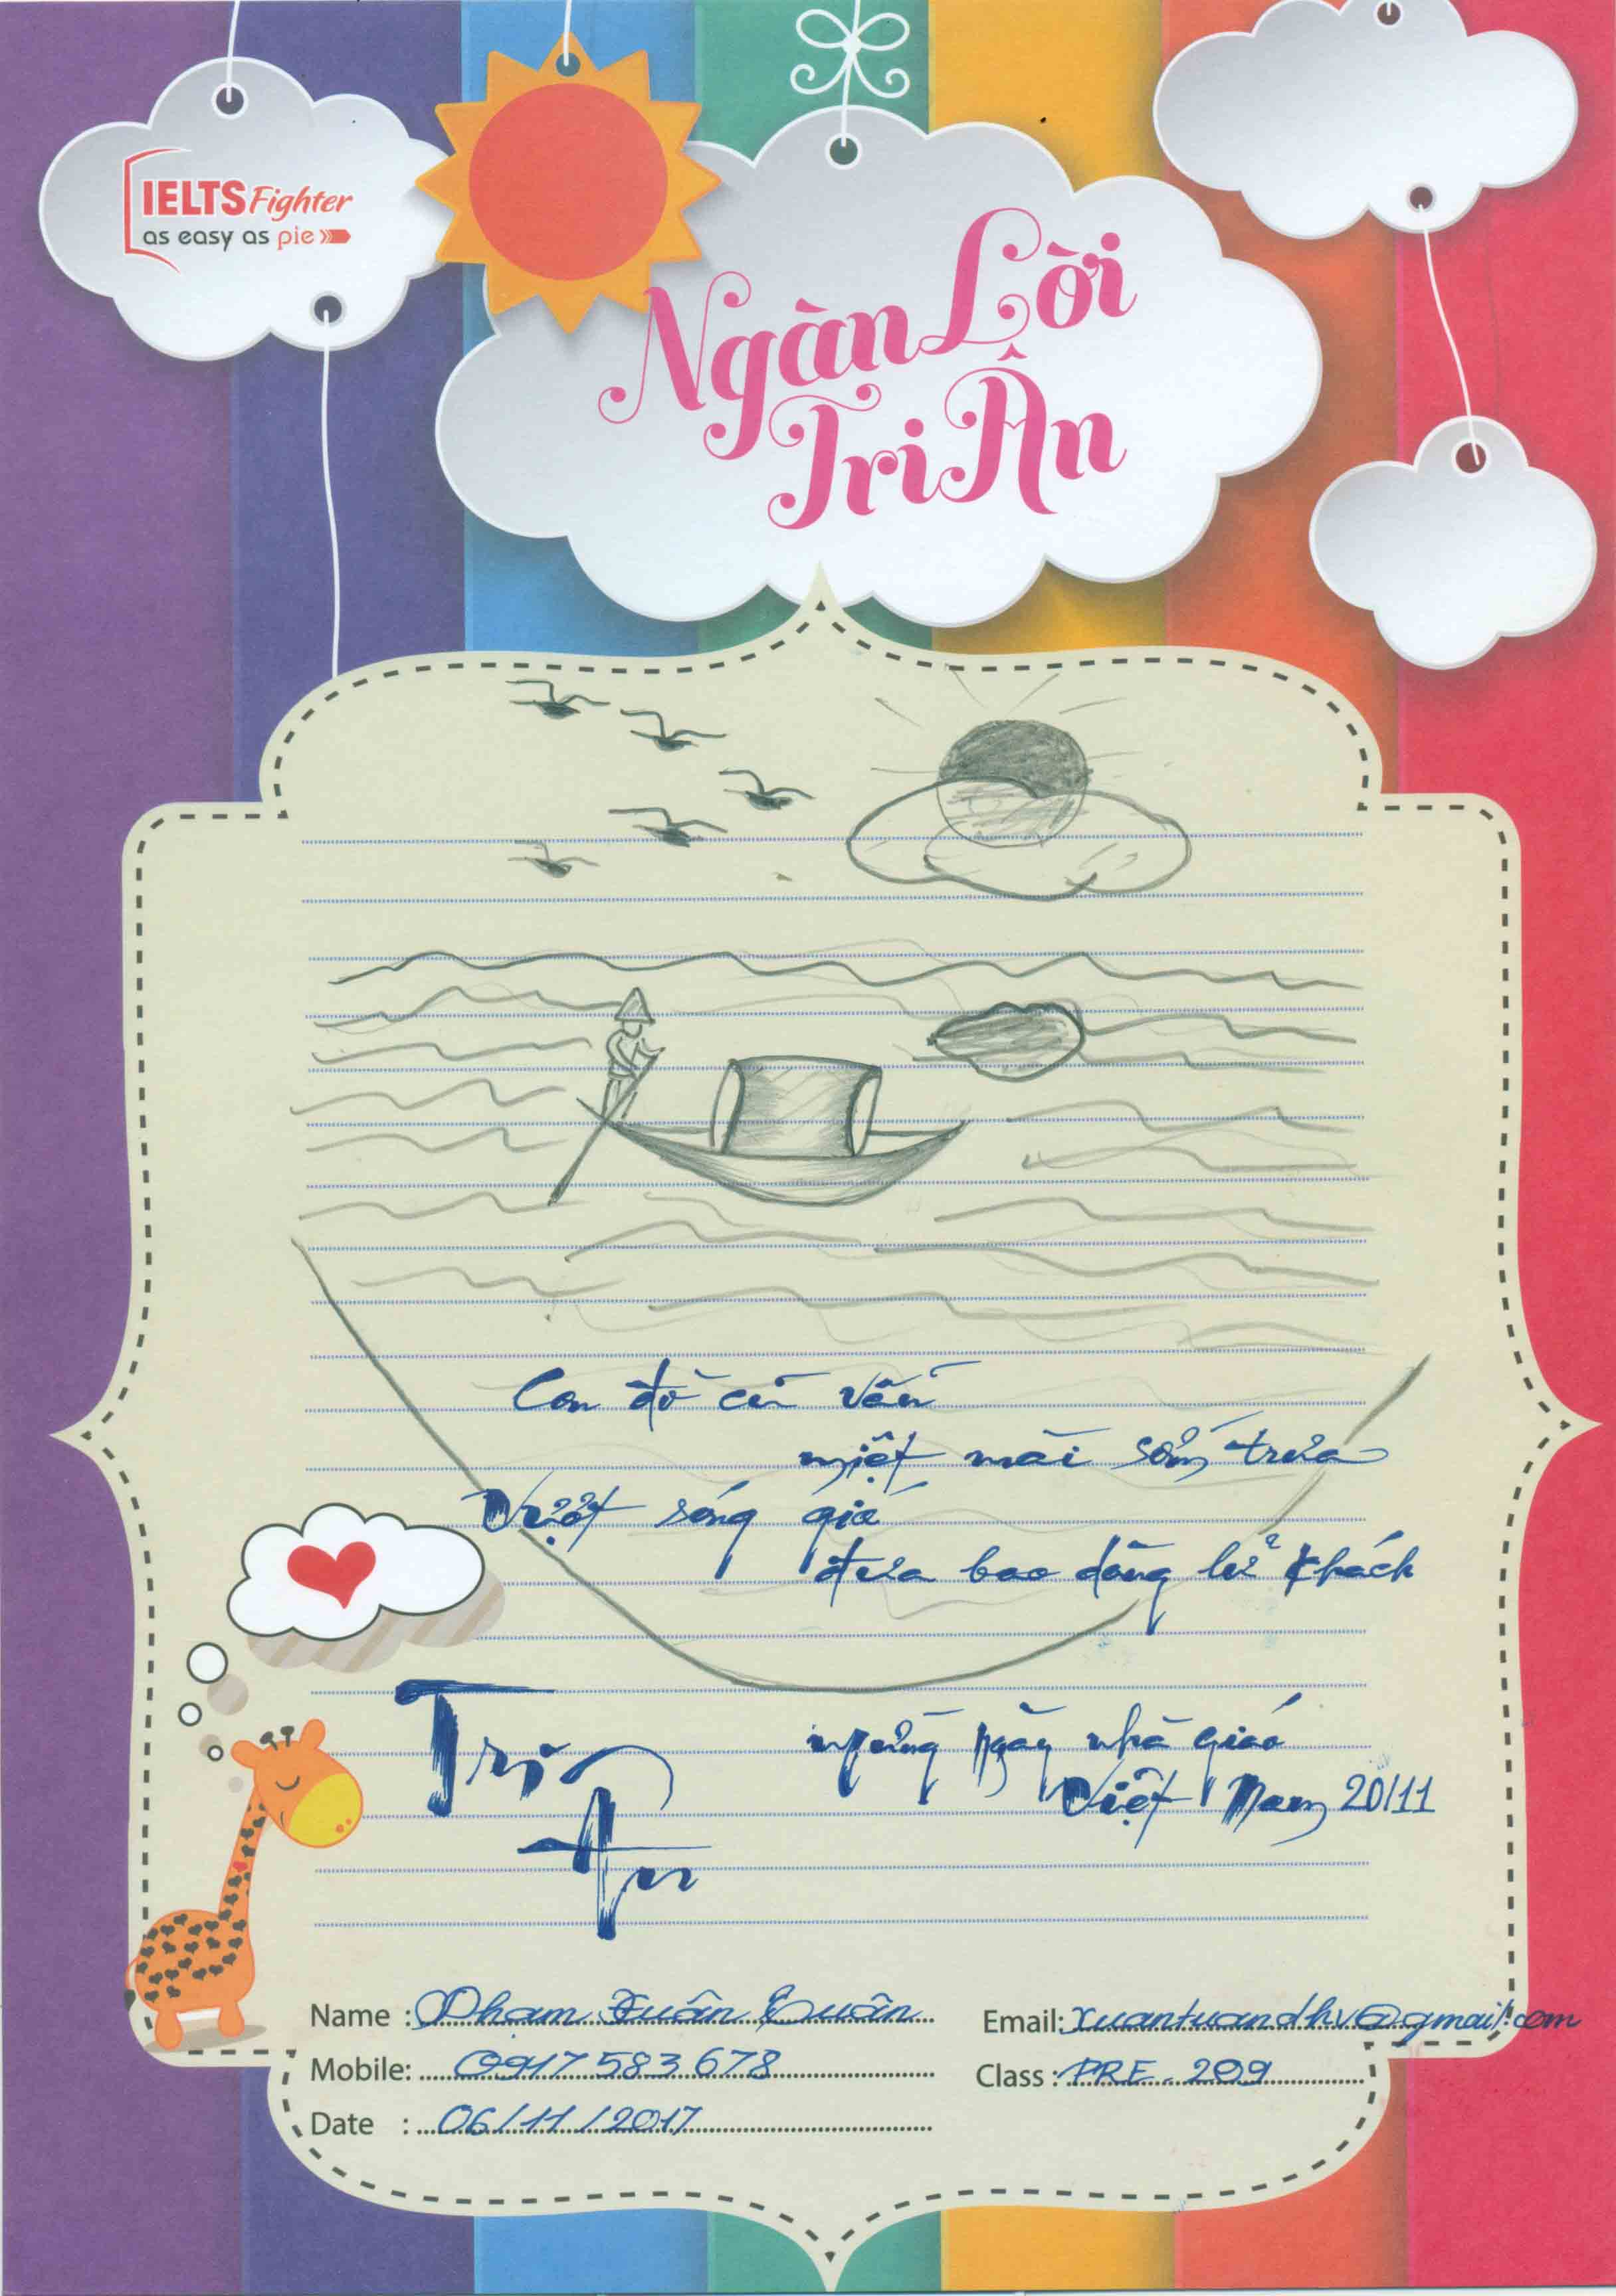 IELTS Fighter
as easy as pie
Ngàn Lời
Tri Ân
Con đò cứ vẫn
miệt mài sớm trưa
Vượt sóng gió
đưa bao dòng lữ khách
Tri
Ân
mừng ngày nhà giáo
Việt Nam 20/11
Name : Phạm Xuân Tuân Email: xuantuandhv@gmail.com
Mobile: 0917 583 678 Class : PRE - 209
Date : 06/11/2017